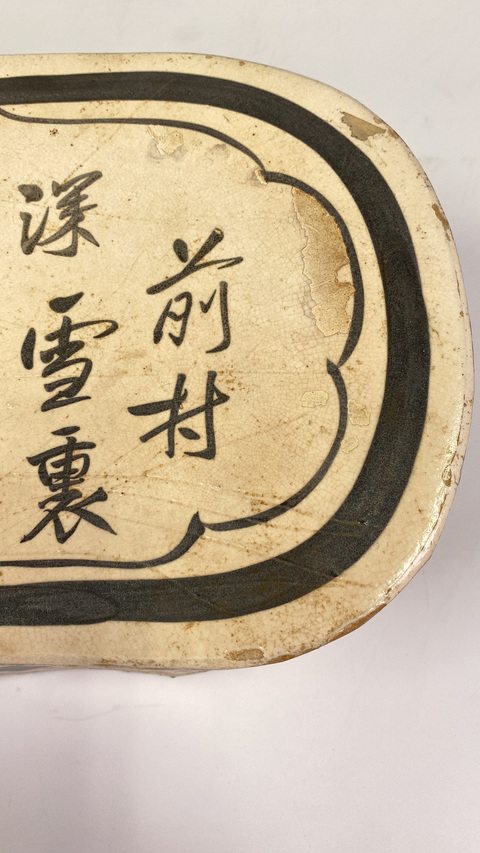 前村
深雪裏